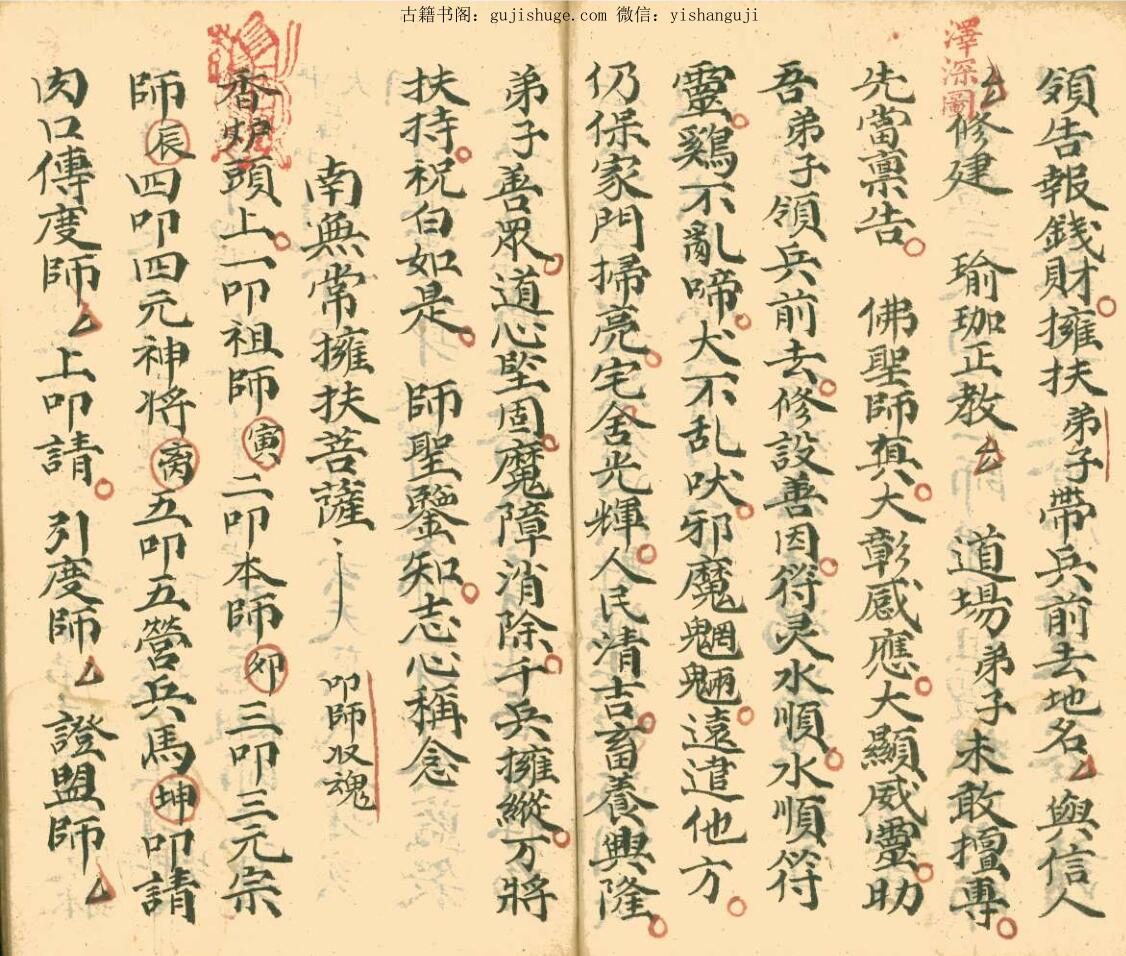 古籍书阁：gujishuge.com 微信：yishanguji
澤深圖
領告報錢財擁扶弟子帶兵前去地名厶與信人
厶修建 瑜珈正教厶 道場弟子未敢擅專
先當禀告 佛聖師真大彰感應大顯威靈助
吾弟子領兵前去修設善因符灵水順水順符
靈鷄不亂啼犬不乱吠邪魔魍魎遠遣他方
仍保家門掃亮宅舍光輝人民清吉畜養興隆
弟子善眾道心堅固魔障消除千兵擁縱万將
扶持祝白如是 師聖鑒知志心稱念
南無常擁扶菩薩
叩師収魂
香炉頭上一叩祖師寅二叩本師卯三叩三元宗
師辰四叩四元神将离五叩五營兵馬坤叩請
肉口傳度師厶上叩請 引度師厶 證盟師厶